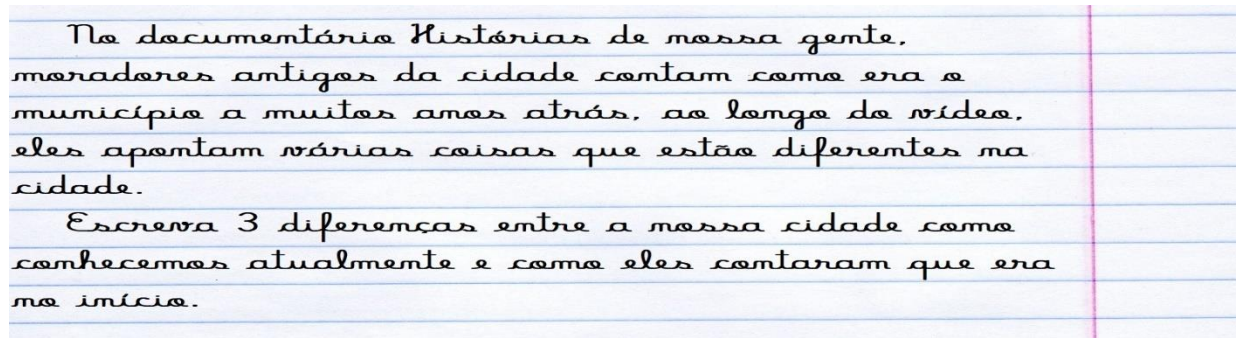 No documentário Histórias de nossa gente,
moradores antigos da cidade contam como era o
município a muitos anos atrás, ao longo do vídeo,
eles apontam várias coisas que estão diferentes na
cidade.
Escreva 3 diferenças entre a nossa cidade como
conhecemos atualmente e como eles contaram que era
no início.